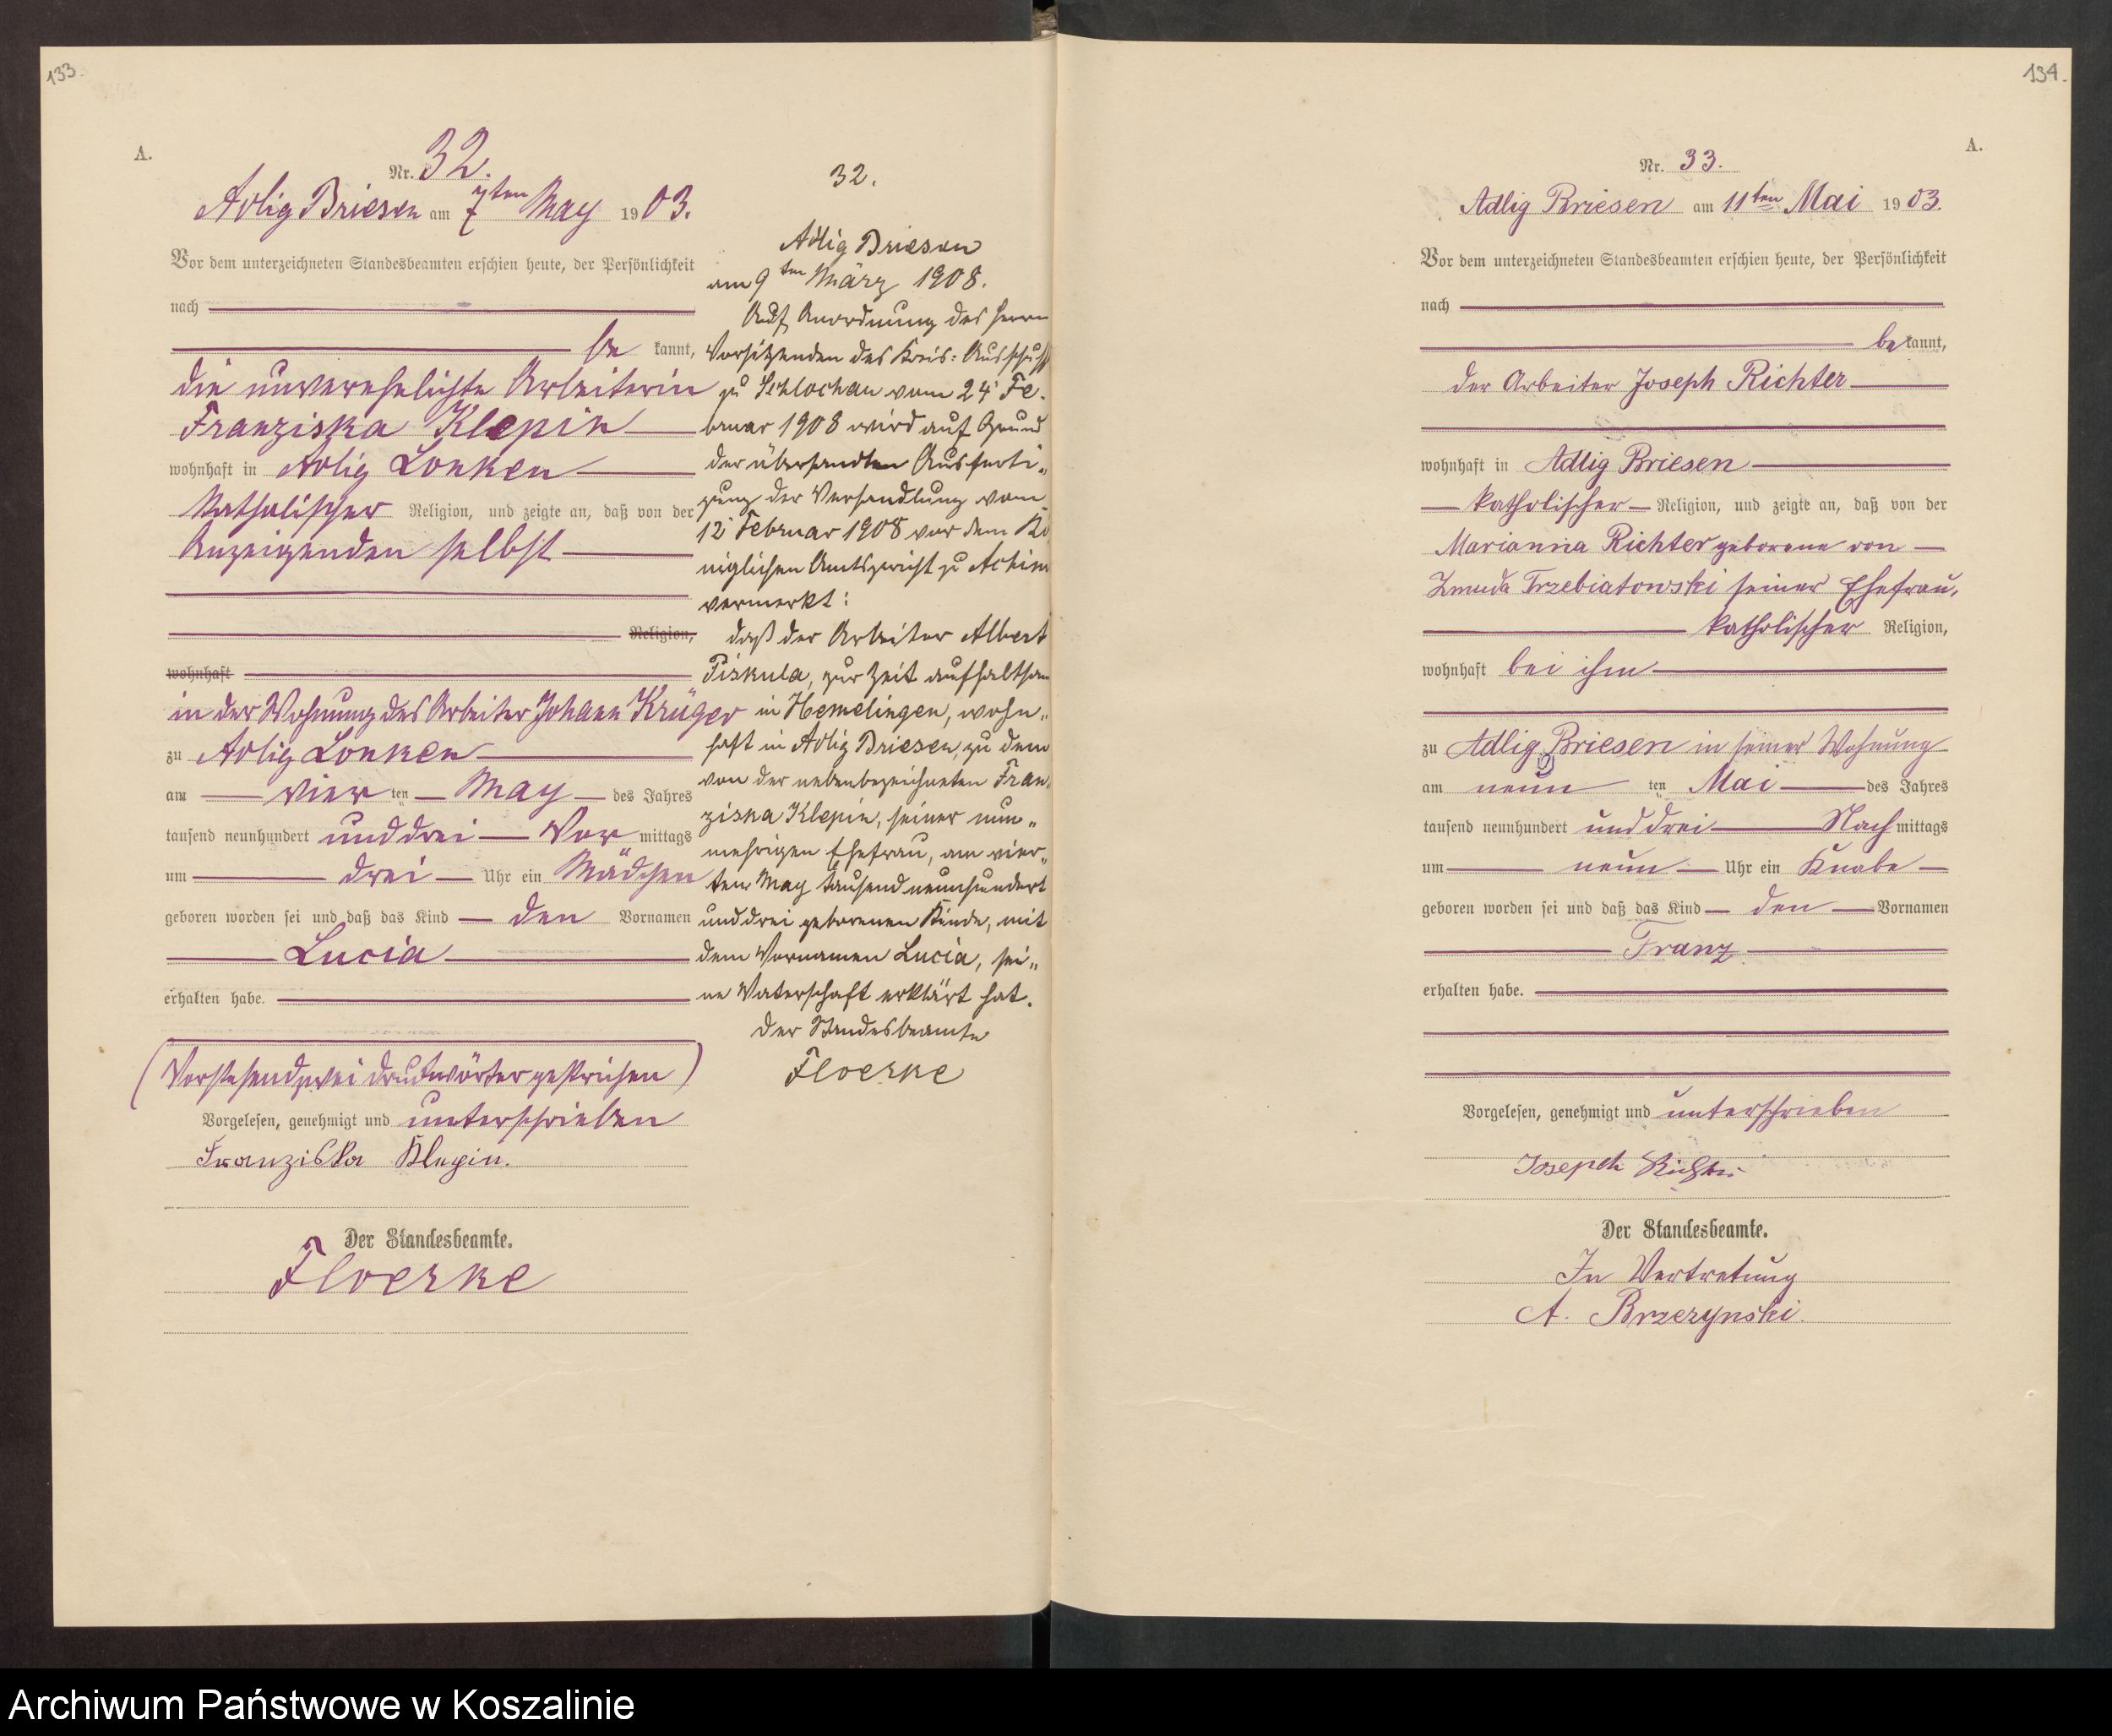 133.
A.
Nr. 32.
Adlig Briesen am 7ten May 1903.
Vor dem unterzeichneten Standesbeamten erschien heute, der Persönlichkeit
nach
be kannt,
die unverehelichte Arbeiterin
Franziska Klepin
wohnhaft in Adlig Lonken
Katholischer Religion, und zeigte an, daß von der
Anzeigenden selbst
Religion,
wohnhaft
in der Wohnung des Arbeiter Johann Krüger
zu Adlig Lonken
am vier ten May des Jahres
tausend neunhundert und drei Vor mittags
um drei Uhr ein Mädchen
geboren worden sei und daß das Kind den Vornamen
Lucia
erhalten habe.
(Vorstehend zwei Druckwörter gestrichen)
Vorgelesen, genehmigt und unterschrieben
Franziska Klepin.
Der Standesbeamte.
Floerke
32.
Adlig Briesen
am 9ten März 1908.
Auf Anordnung des Herrn
Vorsitzenden des Kreis-Ausschuss
zu Schlochau vom 24 Fe-
bruar 1908 wird auf Grund
der übersandten Ausferti-
gung der Verhandlung vom
12 Februar 1908 vor dem Kö
niglichen Amtsgericht zu Achim
vermerkt:
daß der Arbeiter Albert
Piskula, zur Zeit aufhaltsam
in Hemelingen, wohn-
haft in Adlig Briesen, zu dem
von der nebenbezeichneten Fran
ziska Klepin, seiner nun-
mehrigen Ehefrau, am vier-
ten May tausend neunhundert
und drei geborenen Kinde, mit
dem Vornamen Lucia, sei-
ne Vaterschaft erklärt hat.
Der Standesbeamte
Floerke
134.
A.
Nr. 33.
Adlig Briesen am 11ten Mai 1903.
Vor dem unterzeichneten Standesbeamten erschien heute, der Persönlichkeit
nach
be kannt,
der Arbeiter Joseph Richter
wohnhaft in Adlig Briesen
katholischer Religion, und zeigte an, daß von der
Marianna Richter geborene von
Zmuda Trzebiatowski seiner Ehefrau,
katholischer Religion,
wohnhaft bei ihm
zu Adlig Briesen in seiner Wohnung
am neun ten Mai des Jahres
tausend neunhundert und drei Nach mittags
um neun Uhr ein Knabe
geboren worden sei und daß das Kind den Vornamen
Franz
erhalten habe.
Vorgelesen, genehmigt und unterschrieben
Josepch Richter
Der Standesbeamte.
In Vertretung
A. Brzezynski.
Archiwum Państwowe w Koszalinie